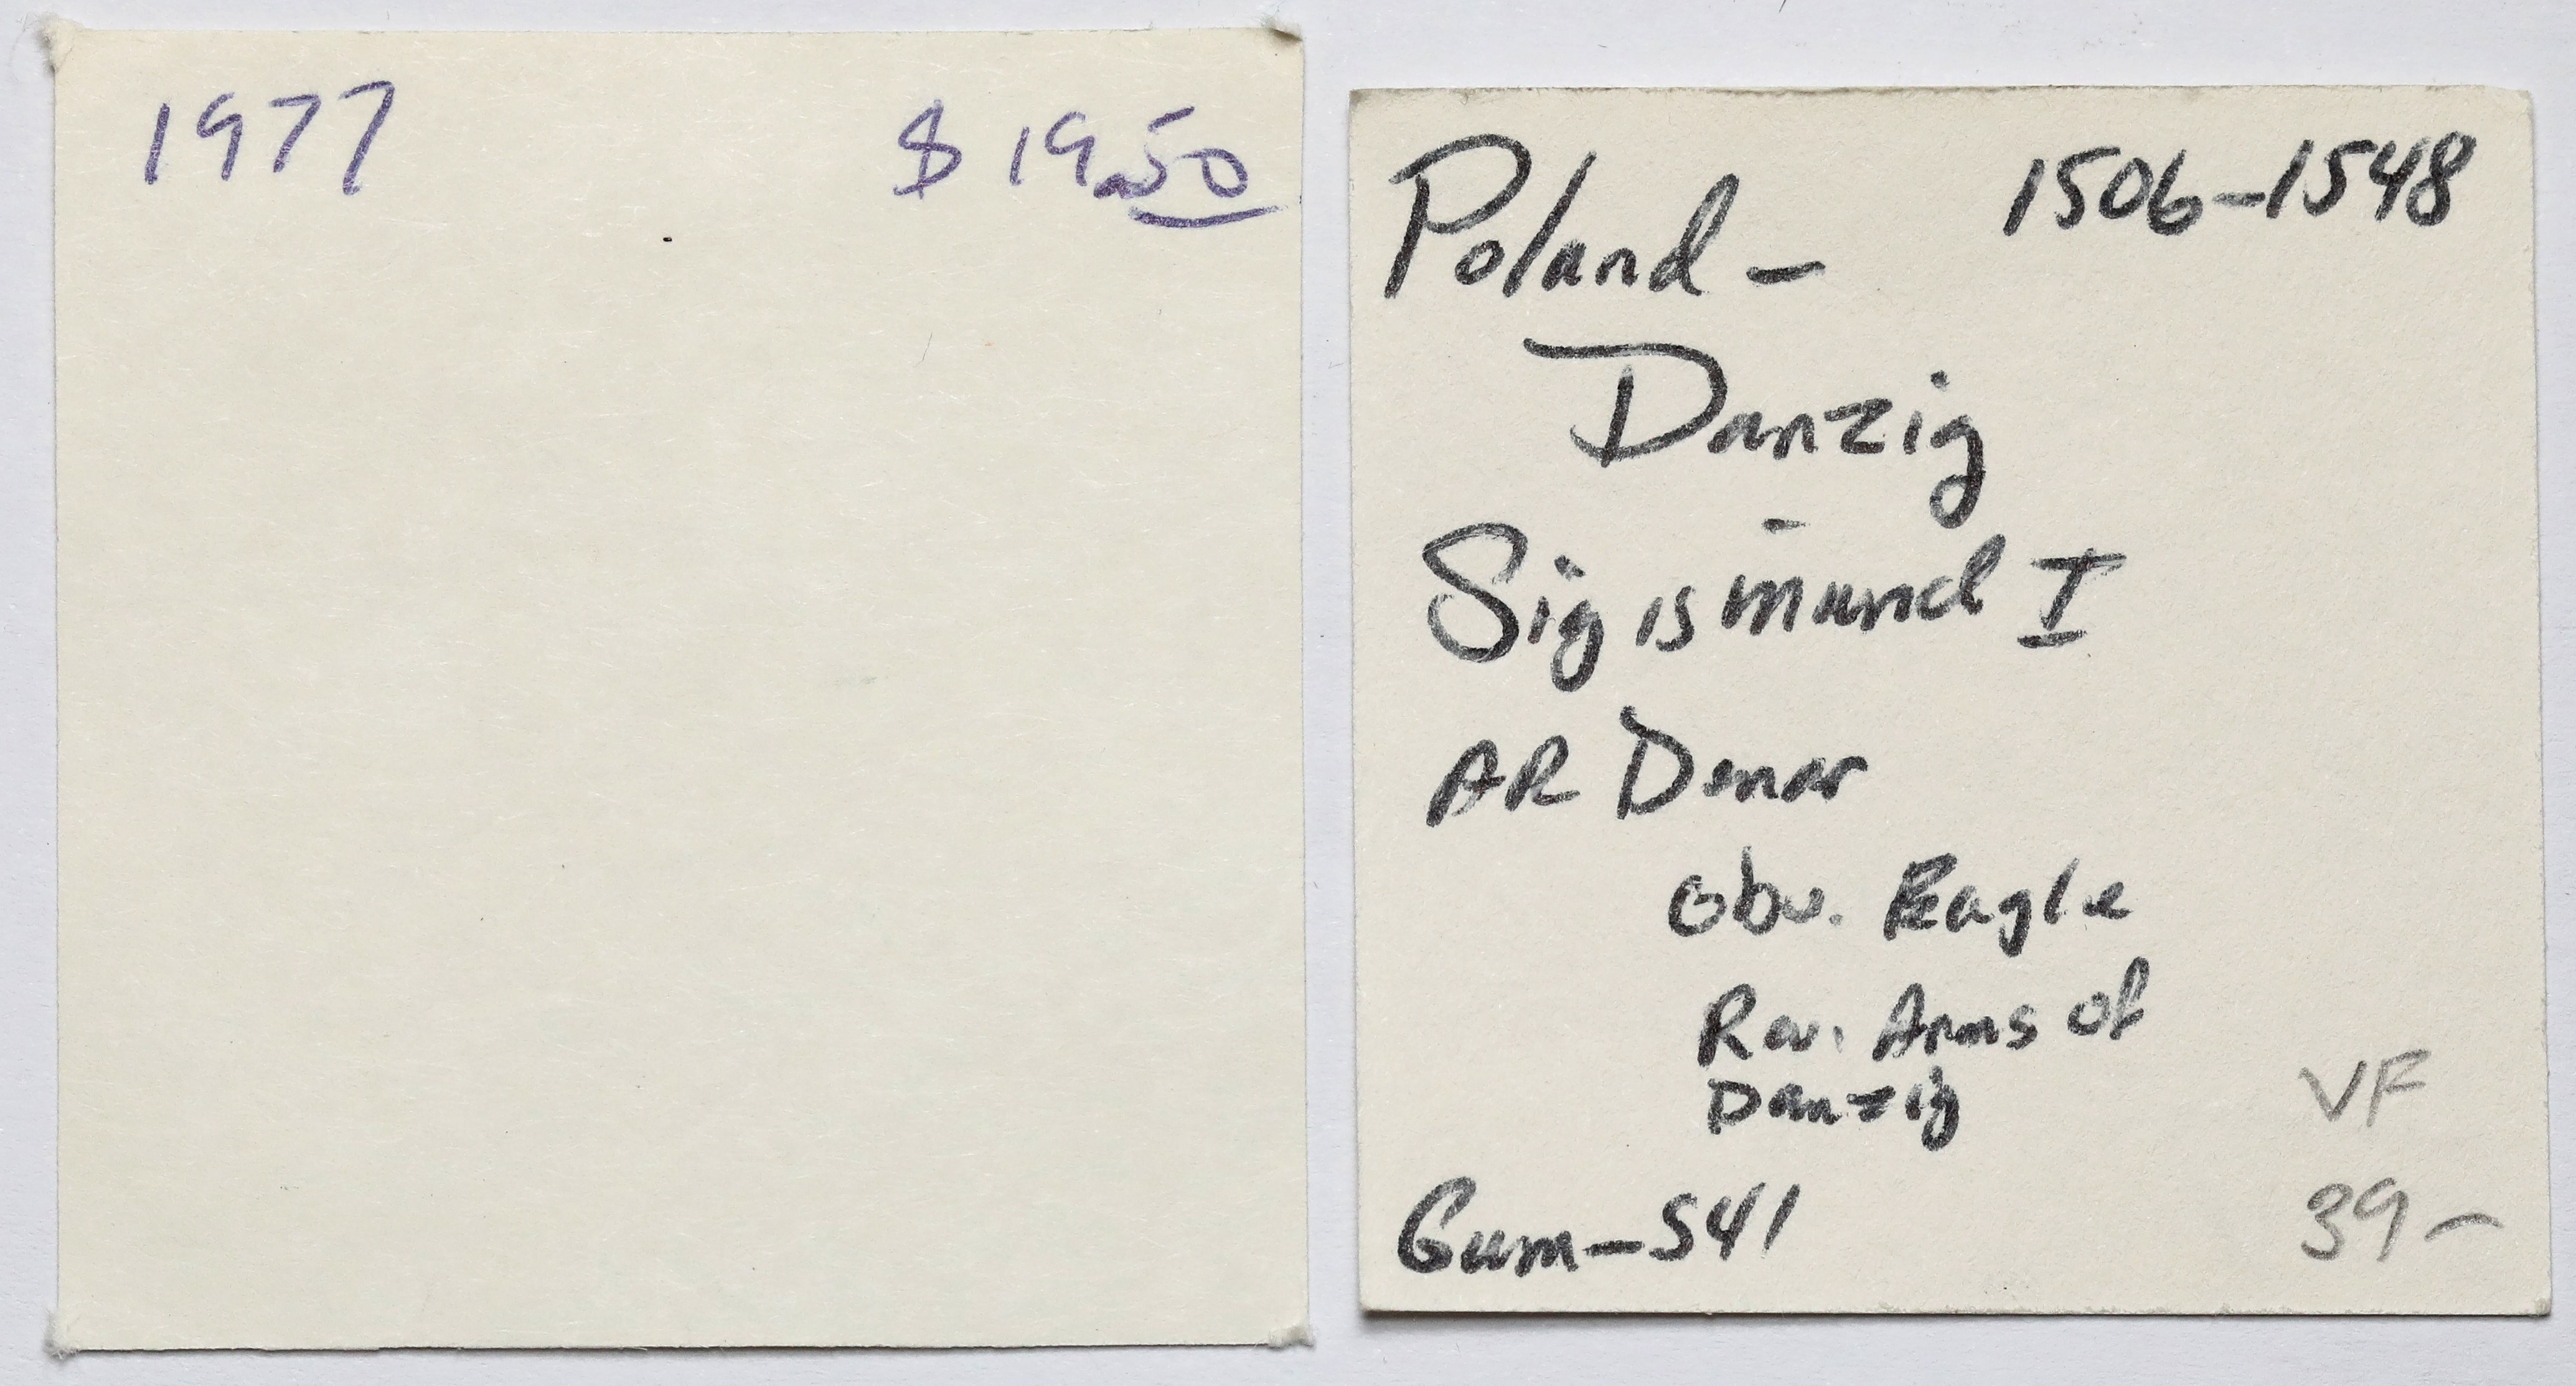 1977 $19.50
Poland - 1506-1548
Danzig
Sigismund I
AR Denar
Obv. Eagle
Rev. Arms of
Danzig
VF
Gum-541 39-